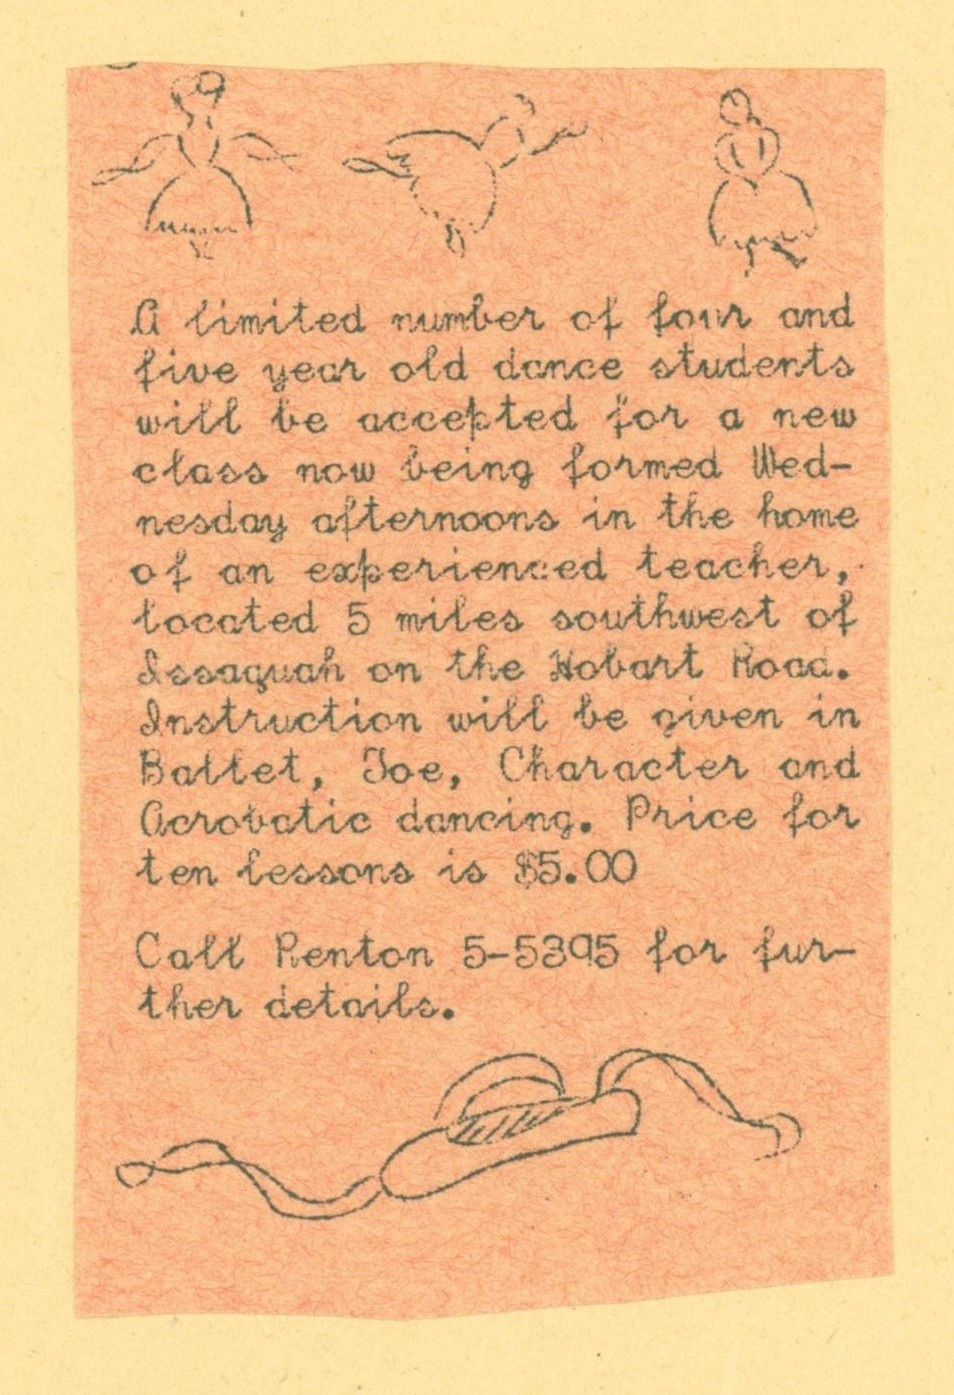 A limited number of four and
five year old dance students
will be accepted for a new
class now being formed Wed-
nesday afternoons in the home
of an experienced teacher,
located 5 miles southwest of
Issaquah on the Hobart Road.
Instruction will be given in
Ballet, Toe, Character and
Acrobatic dancing. Price for
ten lessons is $5.00
Call Renton 5-5395 for fur-
ther details.